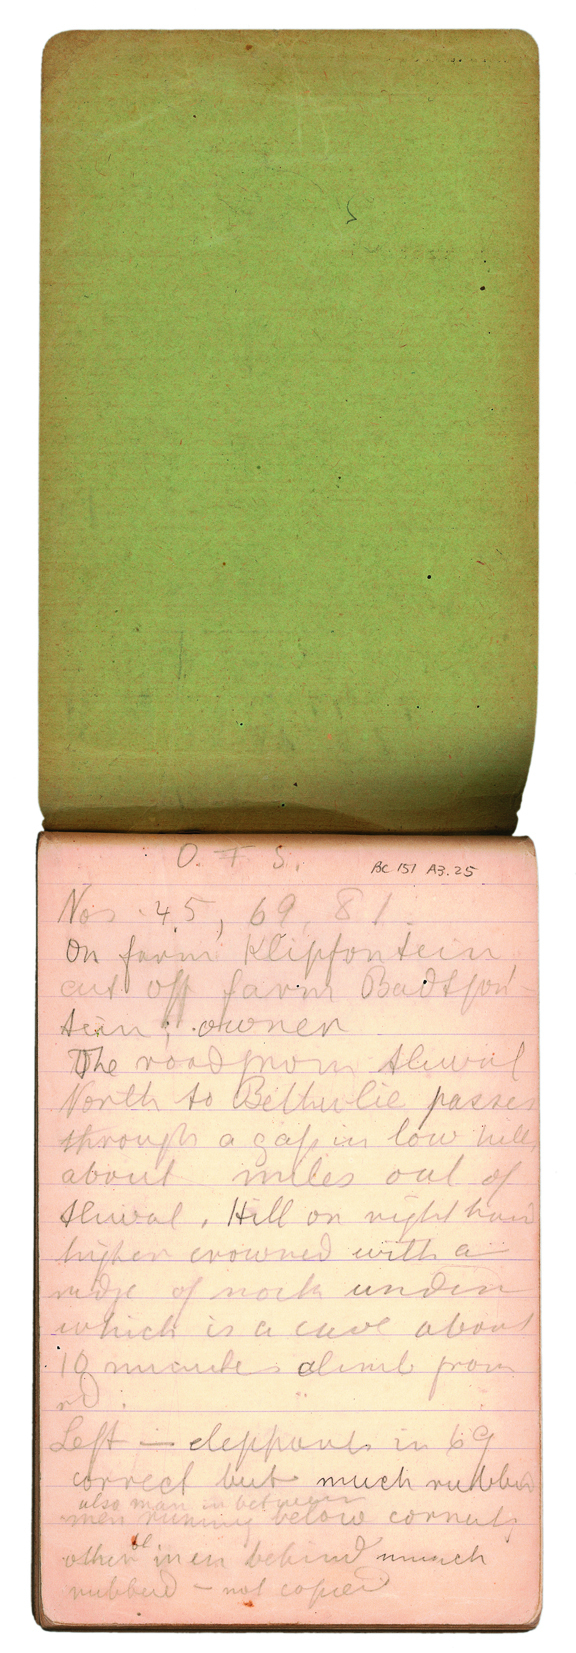 O. F S.
BC 151 A3.25
Nos. 45, 69, 81.
On farm Klipfontein
cut off farm Badsfon-
tein; owner
The road from Aliwal
North to Bethulie passes
through a gap in low hills
about miles out of
Aliwal. Hill on right hand
higher crowned with a
ridge of rock under
which is a cave about
10 minutes climb from
rd.
Left — elephants in 69
correct but much rubbed
also man in between
men running below correct
other men behind much
rubbed – not copied